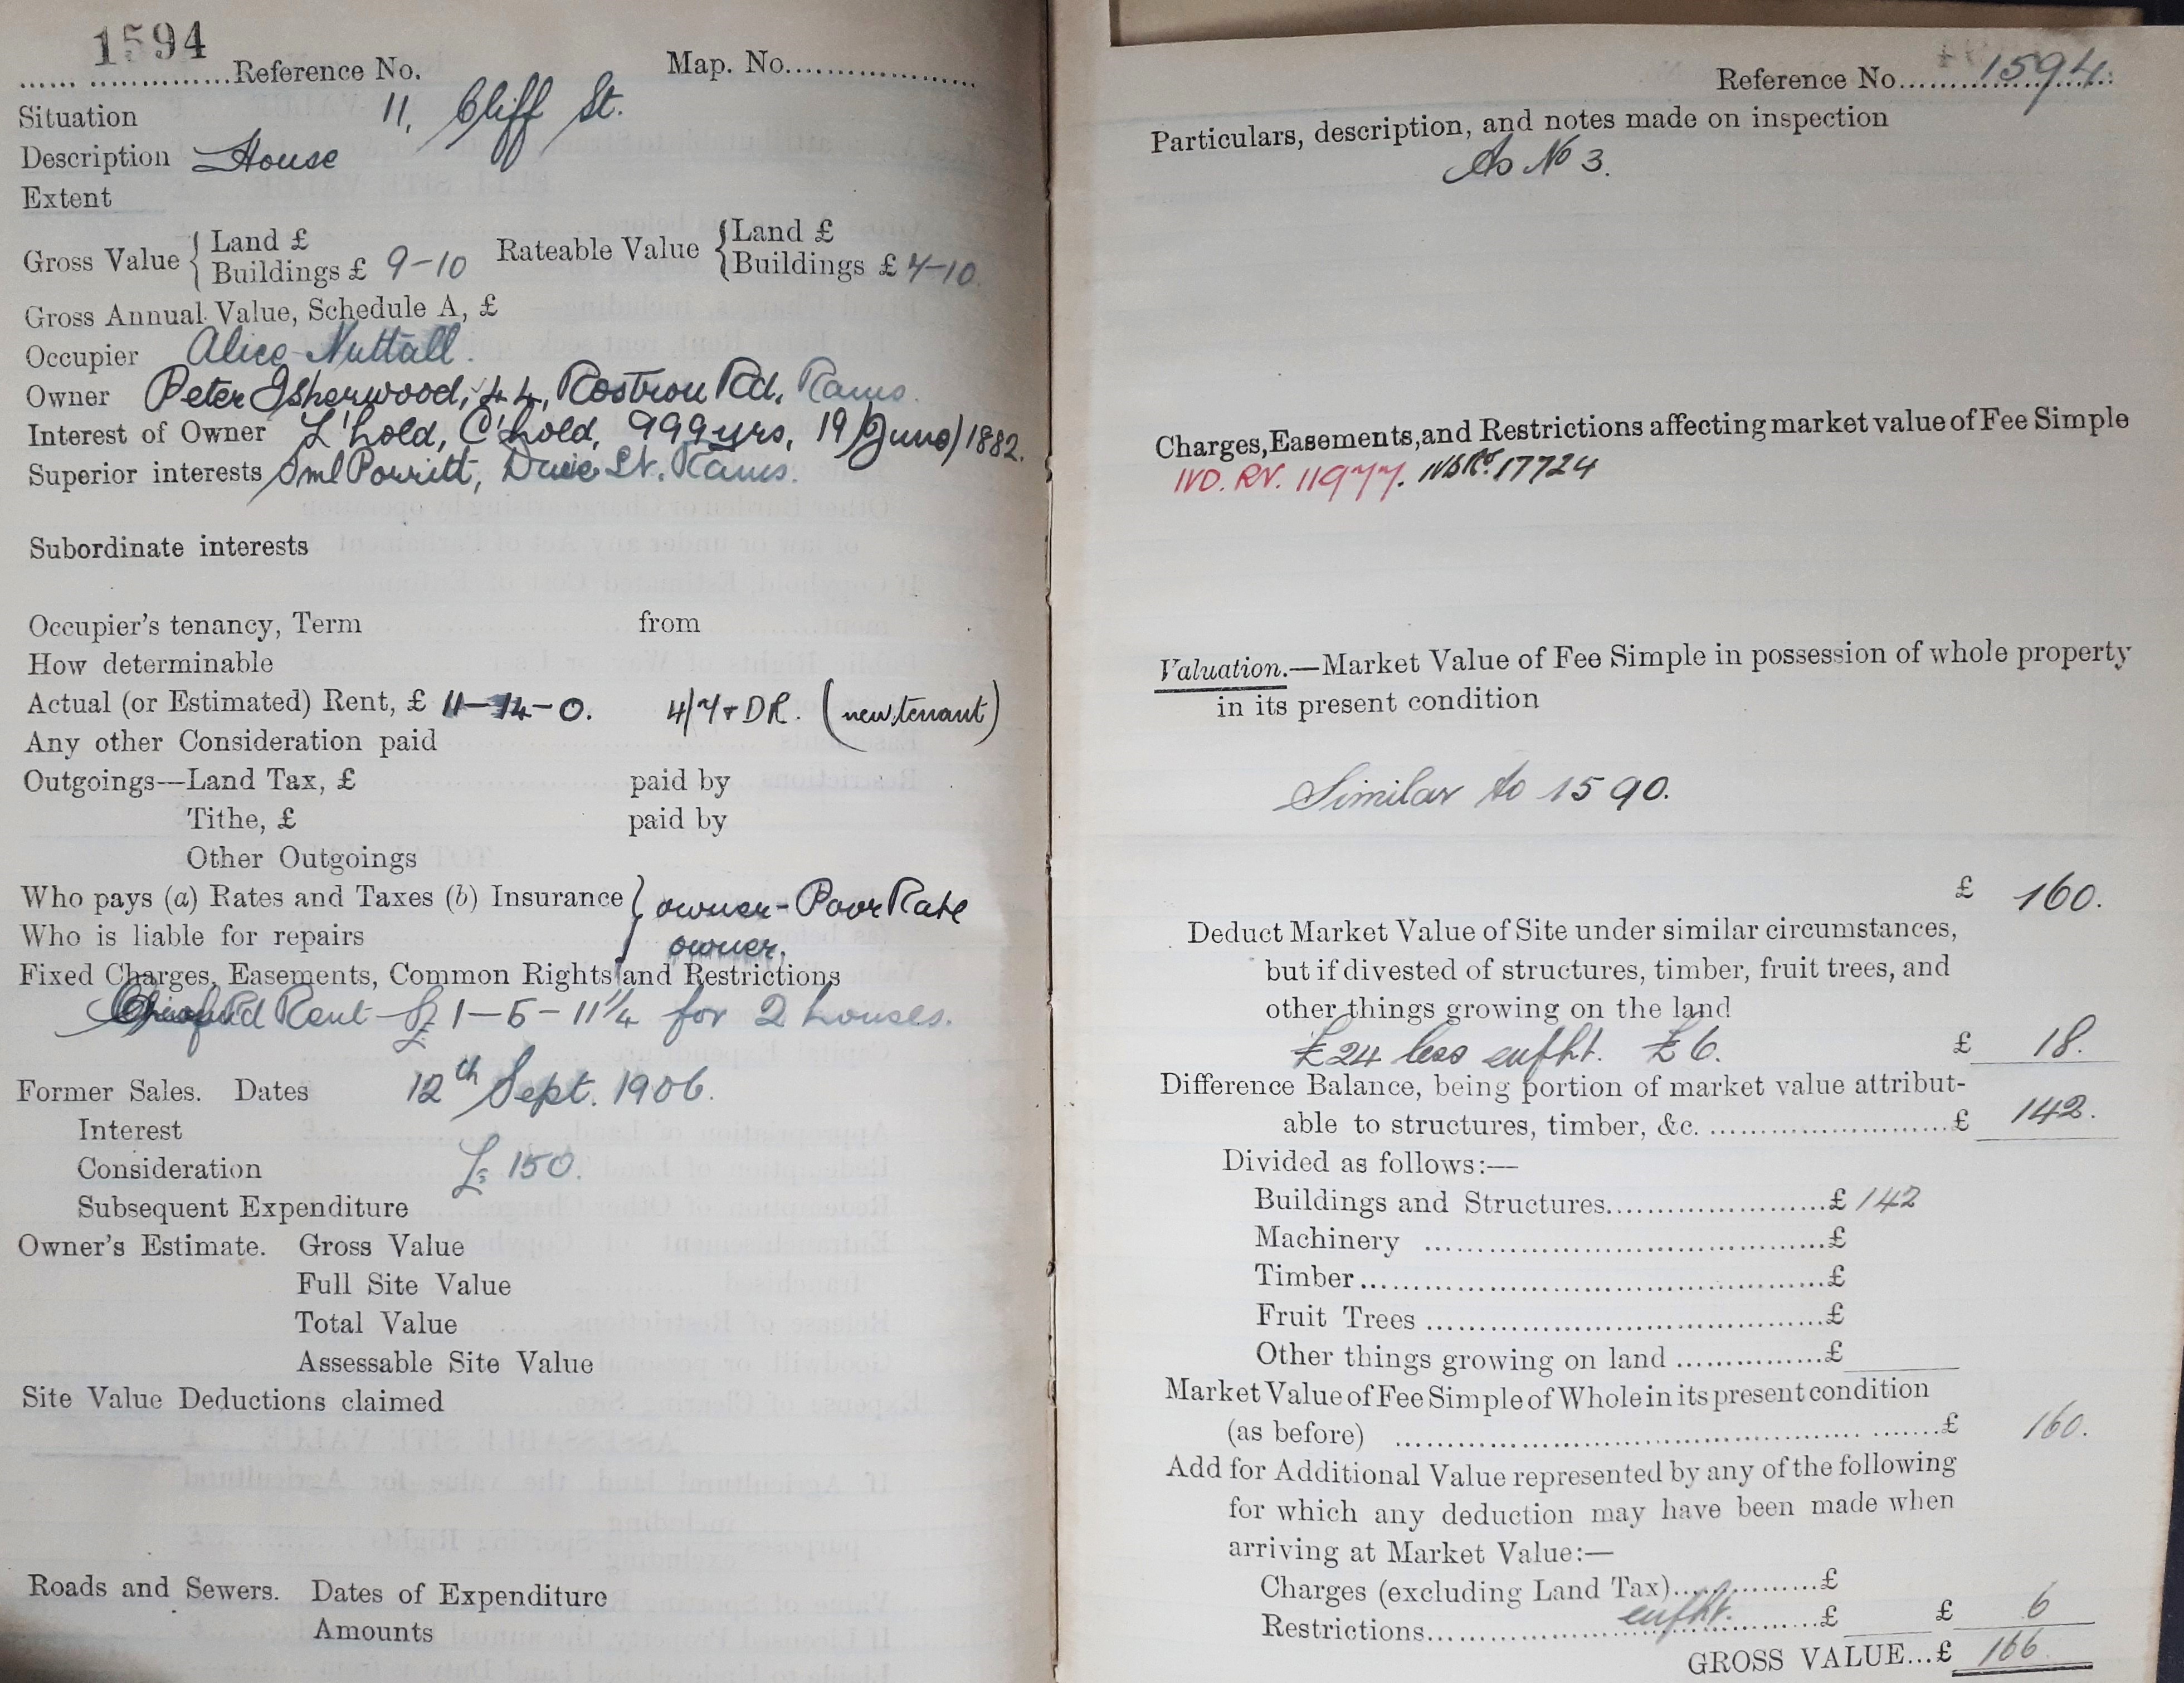 1594
Reference No. Map. No.
Situation 11, Cliff St.
Description House
Extent
Gross Value { Land £
Buildings £ 9-10
Rateable Value { Land £
Buildings £ 7-10
Gross Annual Value, Schedule A, £
Occupier Alice Nuttall.
Owner Peter Isherwood, 44, Rostron Rd, Rams.
Interest of Owner L'hold, C'hold, 999 yrs, 19/June/1882.
Superior interests Sml Porritt, St. Rams.
Subordinate interests
Occupier's tenancy, Term from
How determinable
Actual (or Estimated) Rent, £ 11-14-0. 4/7 + DR. (new tenant)
Any other Consideration paid
Outgoings—Land Tax, £ paid by
Tithe, £ paid by
Other Outgoings
Who pays (a) Rates and Taxes (b) Insurance } owner - Poor Rate
Who is liable for repairs owner.
Fixed Charges, Easements, Common Rights and Restrictions
Rent £1-5-11¼ for 2 houses.
Former Sales. Dates 12th Sept. 1906.
Interest
Consideration £150.
Subsequent Expenditure
Owner's Estimate. Gross Value
Full Site Value
Total Value
Assessable Site Value
Site Value Deductions claimed
Roads and Sewers. Dates of Expenditure
Amounts
Reference No. 1594
Particulars, description, and notes made on inspection
As No 3.
Charges, Easements, and Restrictions affecting market value of Fee Simple
IVD. RV. 11977. 17724
Valuation.—Market Value of Fee Simple in possession of whole property
in its present condition
Similar to 1590.
£ 160.
Deduct Market Value of Site under similar circumstances,
but if divested of structures, timber, fruit trees, and
other things growing on the land
£24 less enfht. £6. £ 18.
Difference Balance, being portion of market value attribut-
able to structures, timber, &c. £ 142.
Divided as follows:—
Buildings and Structures £ 142
Machinery £
Timber £
Fruit Trees £
Other things growing on land £
Market Value of Fee Simple of Whole in its present condition
(as before) £ 160.
Add for Additional Value represented by any of the following
for which any deduction may have been made when
arriving at Market Value:—
Charges (excluding Land Tax) £
Restrictions enfht. £ £ 6
GROSS VALUE...£ 166